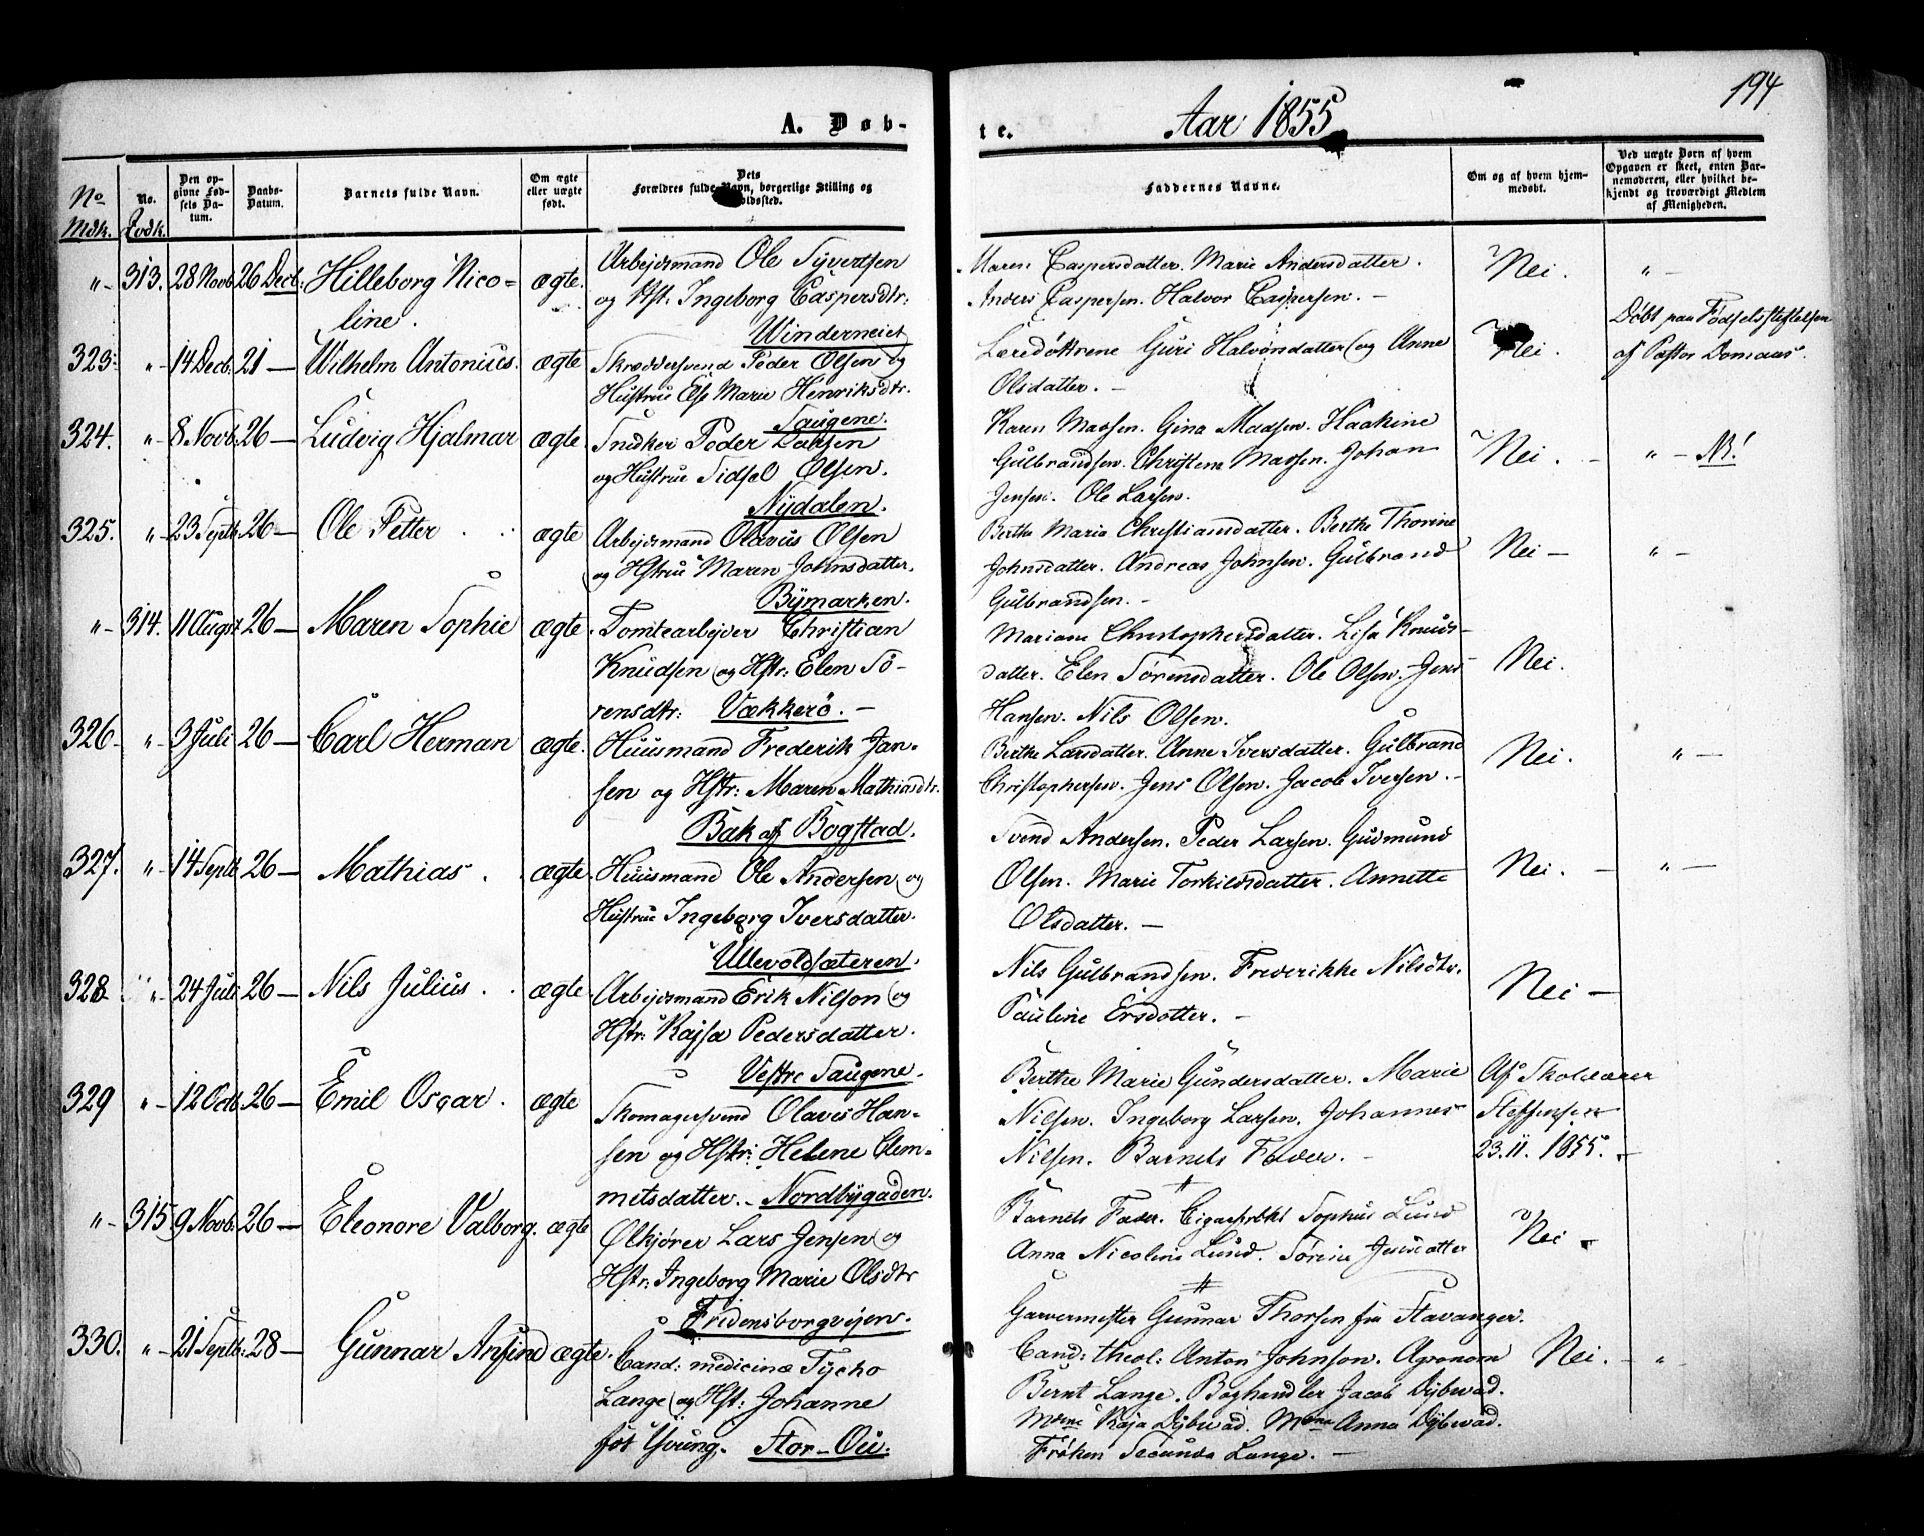 194
A. Døb-
te.
Aar 1855
No Mdk.
No. Qvdk.
Den opgivne Fødsels Datum.
Daabs-Datum.
Barnets fulde Navn.
Om ægte eller uægte født.
Dets Forældres fulde Navn, borgerlige Stilling og
Faddernes Navne.
Om og af hvem hjemmedøbt.
Ved uægte Børn af hvem Opgaven er skeet, enten Barnemoderen, eller hvilket bekjendt og troværdigt Medlem af Menigheden.
"- 313. 28 Novb. 26 Decb: Hilleborg Nico-
line.
ægte.
Arbejdsmand Ole Syvertsen
og Hst. Ingeborg Caspersdtr:
Winderneiet
Maren Caspersdatter. Marie Andersdatter.
Anders Caspersen. Halvor Caspersen. -
Nei. "-
323: "- 14 Decb. 21 - Wilhelm Antonius. ægte
Skræddersvend Peder Olsen og
Hustrue Else Marie Henriksdtr.
Saugene.
Læredøttrene Guri Halvorsdatter og Anne
Olsdatter. -
Nei.
Døbt paa Fødselsstiftelsen
af Pastor Domaas.
324. "- 8 Novb. 26 - Ludvig Hjalmar ægte
Snidker Peder Larsen
og Hustrue Sidsel Olsen.
Nydalen.
Karen Massen. Gina Maasen. Haakine
Gulbrandsen. Christene Massen. Johan
Jensen. Ole Larsen.
Nei. - "-
325. "- 23 Septb. 26 - Ole Petter. ægte
Arbejdsmand Olavus Olsen
og Hstrue Maren Johnsdatter.
Bymarken.
Berthe Maria Christiansdatter. Berthe Thorine
Johnsdatter. Andreas Johnsen. Gulbrand
Gulbrandsen. -
Nei - "-
"- 314. 11 August 26 - Maren Sophie ægte
Tomtearbejder Christian
Knudsen og Hstr: Elen Sö-
rensdtr: Vækkerö. -
Mariane Christophersdatter. Lisa Knuds-
datter. Elen Sørensdatter. Ole Olsen. Jens
Hansen. Nils Olsen.
Nei.
326. "- 3 Juli 26 - Carl Herman ægte.
Huusmand Frederik Jan-
sen og Hstr: Maren Mathiasdtr.
Bak af Bogstad.
Berthe Larsdatter. Anne Iversdatter. Gulbrand
Christophersen. Jens Olsen. Jacob Iversen. -
Nei. "-
327. "- 14 Septb. 26 - Mathias. ægte.
Huusmand Ole Andersen og
Hustrue Ingeborg Iversdatter.
Ullevoldsæteren.
Svend Andersen. Peder Larsen. Gudmund
Olsen. Marie Torkildsdatter. Annette
Olsdatter. -
Nei. - "-
328. "- 24 Juli 26 - Nils Julius. ægte.
Arbejdsmand Erik Nilson og
Hstr: Kajsa Pedersdatter.
Vestre Saugene.
Nils Gulbrandsen. Frederikke Nilsdtr.
Pauline Ersdotter. -
Nei -
329 "- 12 Octb. 26 - Emil Oscar. ægte
Skomagersvend Olavus Han-
sen og Hstr: Helene Clem-
metsdatter. - Nordbygaden.
Berthe Marie Gundersdatter. Marie
Nilsen. Ingeborg Larsen. Johannes
Nilsen. Barnets Fader. -
Af Skolelærer
Steffensen
23. 11. 1855. -
"- 315. 9 Novb. 26 - Eleonore Valborg. ægte
Ølkjører Lars Jensen og
Hstr: Ingeborg Marie Olsdtr
Fridensborgveien.
Barnets Fader. Cigarfabkt Sophus Lund
Anna Nicoline Lund. Sörine
Nei
330. "- 21 Septb: 28 - Gunnar ægte.
Cand: medicinæ Tycho
Lange og Hst: Johanne
Stor-Ou.
Garvermester Gunnar Thorsen fra Stavanger.
Cand: theol: Anton Johnson. Agronom
Bernt Lange. Boghandler Jacob Dybwad.
Mdme Kaja Dybwad. Mdme Anna Dybwad.
Frøken Secunda Lange. -
Nei. - "-